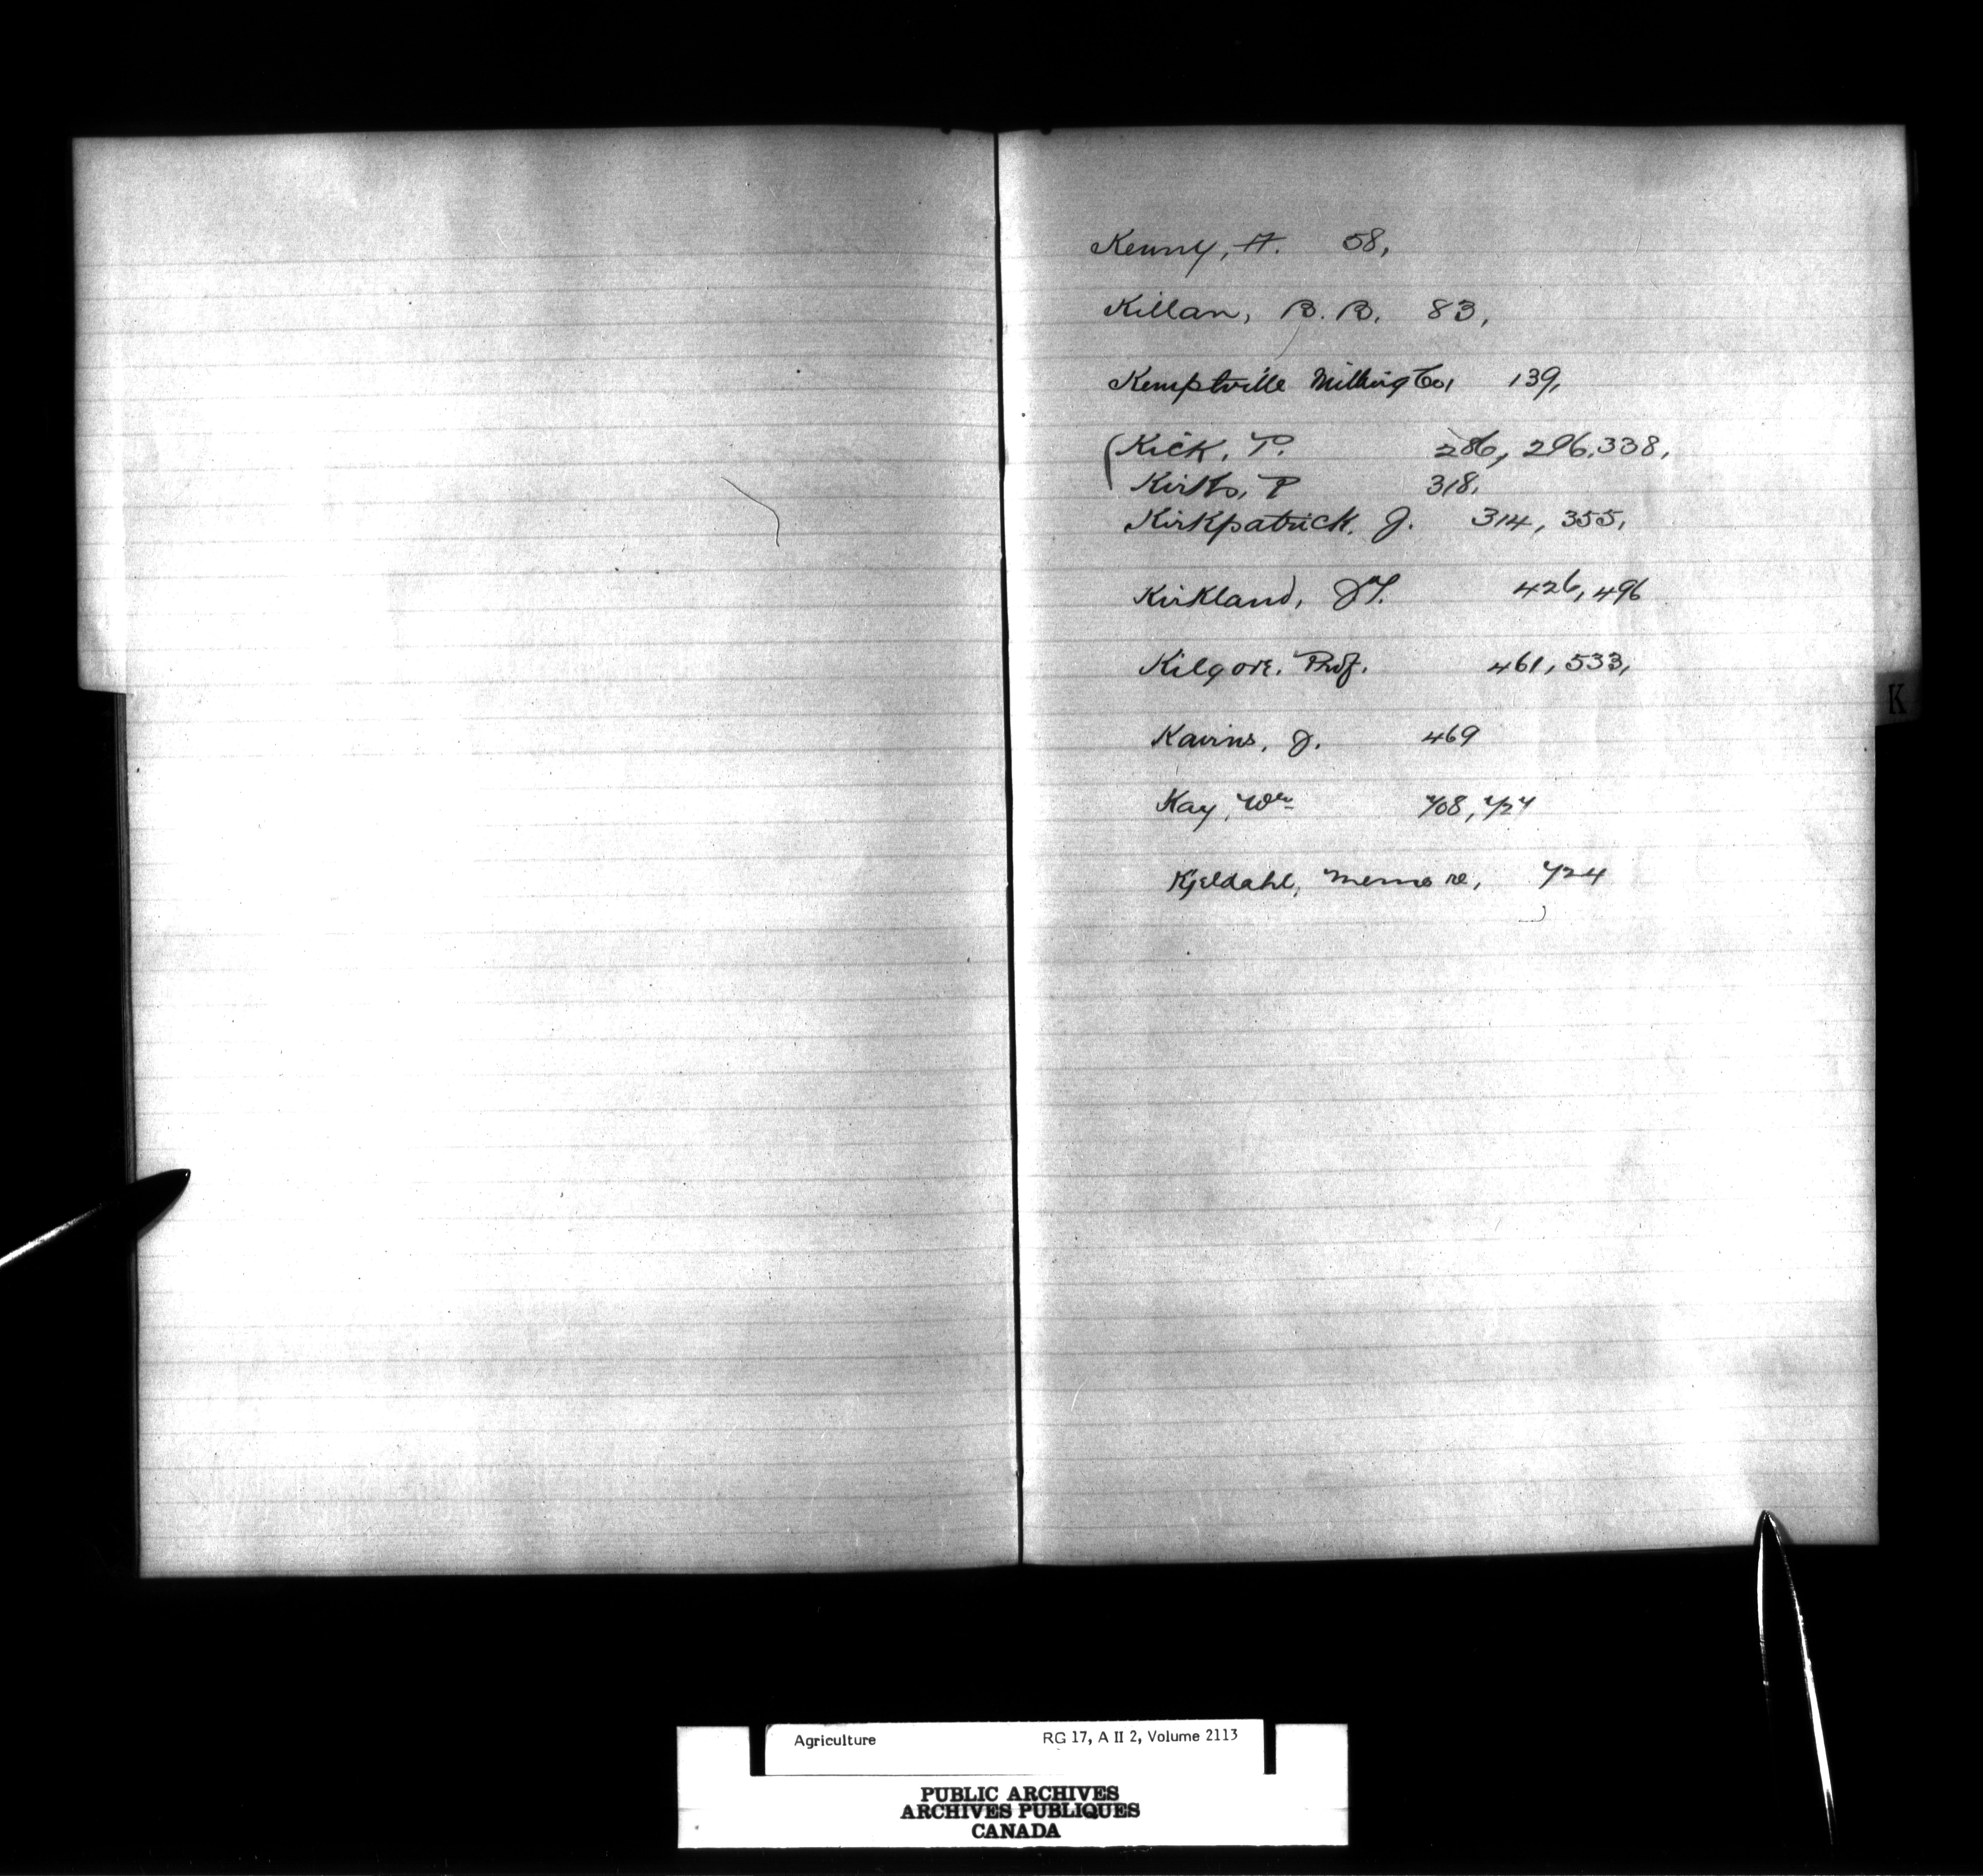 Kenny, H. 58,
Killan, B. B. 83,
Kemptville Milling Co, 139,
(Kick, T. 286, 296, 338,
Kirks, P 318,
Kirkpatrick, J. 314, 355,
Kirkland, J.T. 426, 496
Kilgore, Prof. 461, 533,
K
Kairns, J. 469
Kay, Wm 708, 727
Kjeldahl, memo re, 724
Agriculture RG 17, A II 2, Volume 2113
PUBLIC ARCHIVES
ARCHIVES PUBLIQUES
CANADA